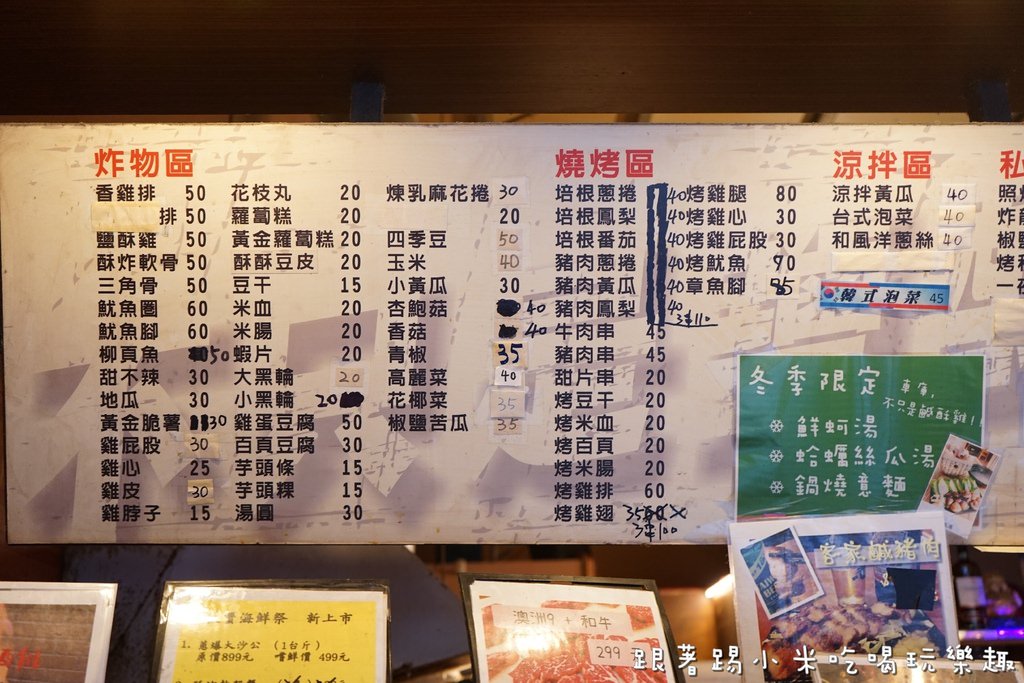 炸物區
香雞排 50
排 50
鹽酥雞 50
酥炸軟骨 50
三角骨 50
魷魚圈 60
魷魚腳 60
柳頁魚 50
甜不辣 30
地瓜 30
黃金脆薯 30
雞屁股 30
雞心 25
雞皮 30
雞脖子 15
花枝丸 20
蘿蔔糕 20
黃金蘿蔔糕 20
酥酥豆皮 20
豆干 15
米血 20
米腸 20
蝦片 20
大黑輪 20
小黑輪 20
雞蛋豆腐 50
百頁豆腐 30
芋頭條 15
芋頭粿 15
湯圓 30
煉乳麻花捲 30
20
四季豆 50
玉米 40
小黃瓜 30
杏鮑菇 40
香菇 40
青椒 35
高麗菜 40
花椰菜 35
椒鹽苦瓜 35
燒烤區
培根蔥捲 40
培根鳳梨 40
培根番茄 40
豬肉蔥捲 40
豬肉黃瓜 40
豬肉鳳梨 40
3串110
牛肉串 45
豬肉串 45
甜片串 20
烤豆干 20
烤米血 20
烤百頁 20
烤米腸 20
烤雞排 60
烤雞翅 35
3串100
烤雞腿 80
烤雞心 30
烤雞屁股 30
烤魷魚 90
章魚腳 85
涼拌區
涼拌黃瓜 40
台式泡菜 40
和風洋蔥絲 40
韓式泡菜 45
私
照燒
炸
椒鹽
烤
一夜
冬季限定
不只是鹹酥雞!!
鮮蚵湯
蛤蠣絲瓜湯
鍋燒意麵
客家鹹豬肉
海鮮祭 新上市
1. 蔥爆大沙公 (1台斤)
原價899元 嚐鮮價 499元
澳洲9+和牛
299
跟著踢小米吃喝玩樂趣